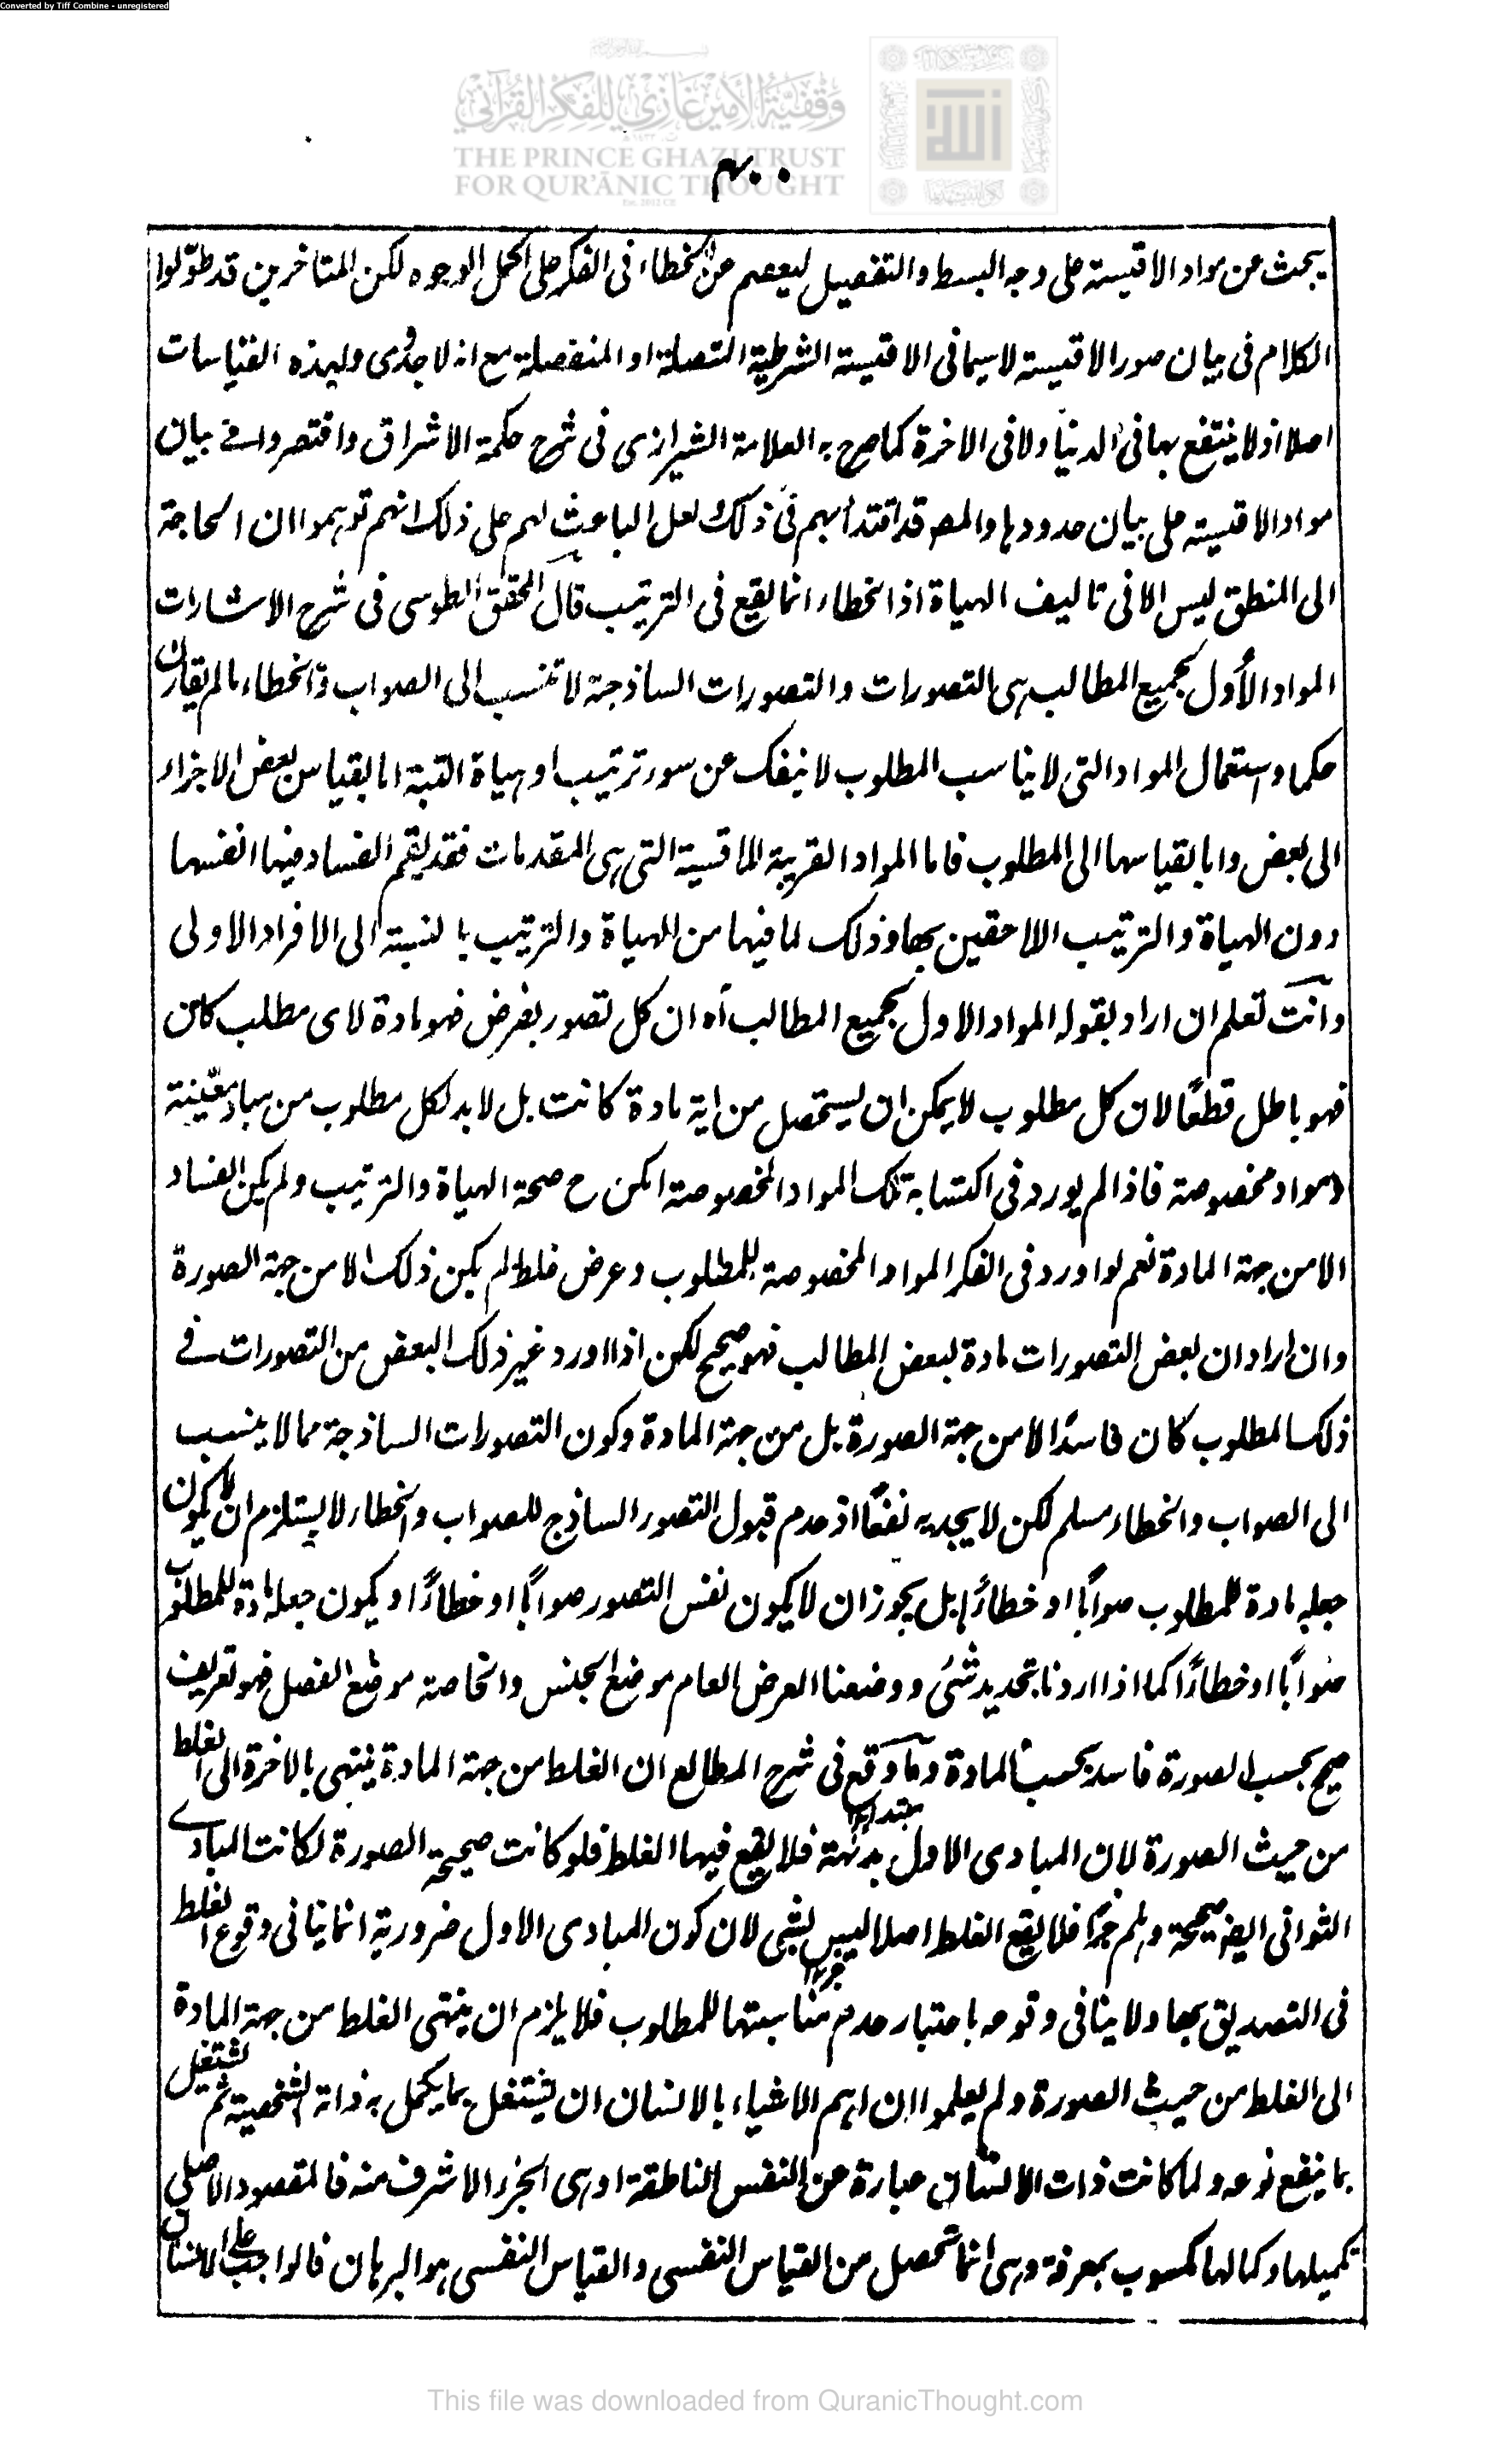 Converted by Tiff Combine - unregistered
وقفية الأمير غازي للفكر القرآني
THE PRINCE GHAZI TRUST
FOR QUR'ĀNIC THOUGHT
۴۰۰
يبحث عن مواد الاقيسة على وجه البسط والتفصيل ليعصم عن الخطاء فى الفكر على اكمل الوجوه لكن المتاخرين قد طوّلوا
الكلام فى بيان صور الاقيسة لاسيما فى الاقيسة الشرطية المتصلة او المنفصلة مع انه لا جدوى ولهذه القياسات
اصلا اذ لا ينتفع بها فى الدنيا ولا فى الاخرة كما صرح به العلامة الشيرازى فى شرح حكمة الاشراق واقتصروا فے بيان
مواد الاقيسة على بيان حدودها والمصو قد اقتدأ بهم فى ذلك ولعل الباعث لهم على ذلك انهم توهموا ان الحاجة
الى المنطق ليس الا فى تاليف الهياة اذ الخطاء انما يقع فى الترتيب قال المحقق الطوسى فى شرح الاشارات
المواد الأول لجميع المطالب هى التصورات والتصورات الساذجة لا تنسب الى الصواب والخطاء مالم يقارن
حكما واستعمال المواد التى لا يناسب المطلوب لا ينفك عن سور ترتيب او هياة البتة اما بقياس بعض الاجزاء
الى بعض واما بقياسها الى المطلوب فاما المواد القريبة للاقيسة التى هى المقدمات فقد يقع الفساد فيها انفسها
دون الهياة والترتيب اللاحقين بها وذلك لما فيها من الهياة والترتيب بالنسبة الى الافراد الاولى
وانت تعلم ان اراد بقوله المواد الاول لجميع المطالب اه ان كل تصور يفرض فهو مادة لاى مطلب كان
فهو باطل قطعًا لان كل مطلوب لا يمكن ان يستحصل من اية مادة كانت بل لابد لكل مطلوب من مباد معيّنة
ومواد مخصوصة فاذا لم يورد فى اكتسابه تلك المواد المخصوصة امكن ح صحة الهياة والترتيب ولم يكن الفساد
الا من جهة المادة نعم لو اورد فى الفكر المواد المخصوصة للمطلوب وعرض غلط لم يكن ذلك الا من جهة الصورة
وان اراد ان بعض التصورات مادة لبعض المطالب فهو صحيح لكن اذا اورد غير ذلك البعض من التصورات فے
ذلك المطلوب كان فاسدًا لا من جهة الصورة بل من جهة المادة وكون التصورات الساذجة مما لا ينسب
الى الصواب والخطاء مسلم لكن لا يجديه نفعًا اذ عدم قبول التصور الساذج للصواب والخطاء لا يستلزم ان لا يكون
جعله مادة للمطلوب صوابًا او خطاءً بل يجوز ان لا يكون نفس التصور صوابًا او خطاءً ويكون جعله مادة للمطلوب
صوابًا او خطاءً كما اذا اردنا تحديد شئ ووضعنا العرض العام موضع الجنس والخاصة موضع الفصل فهو تعريف
صحيح بحسب الصورة فاسد بحسب المادة وما وقع فى شرح المطالع ان الغلط من جهة المادة ينتهى بالاخرة الى الغلط
من حيث الصورة لان المبادى الاول بديهة فلا يقع فيها الغلط فلو كانت صحيحة الصورة لكانت المبادے
الثوانى ايض صحيحة وهلم جرّا فلا يقع الغلط اصلا ليس بشئ لان كون المبادى الاول ضرورية انما ينافى وقوع الغلط
فى التصديق بها ولا ينافى وقوعه باعتبار عدم مناسبتها للمطلوب فلا يلزم ان ينتهى الغلط من جهة المادة
الى الغلط من حيث الصورة ولم يعلموا ان اهم الاشياء بالانسان ان يشتغل بما يكمل به ذاته الشخصية ثم يشتغل
بما ينفع نوعه ولما كانت ذات الانسان عبارة عن النفس الناطقة او هى الجزء الاشرف منه فالمقصود الاصلى
تكميلها وكمالها مكسوب بمعرفة وهى انما تحصل من القياس النفسى والقياس النفسى هو البرهان فالواجب على الانسان
This file was downloaded from QuranicThought.com